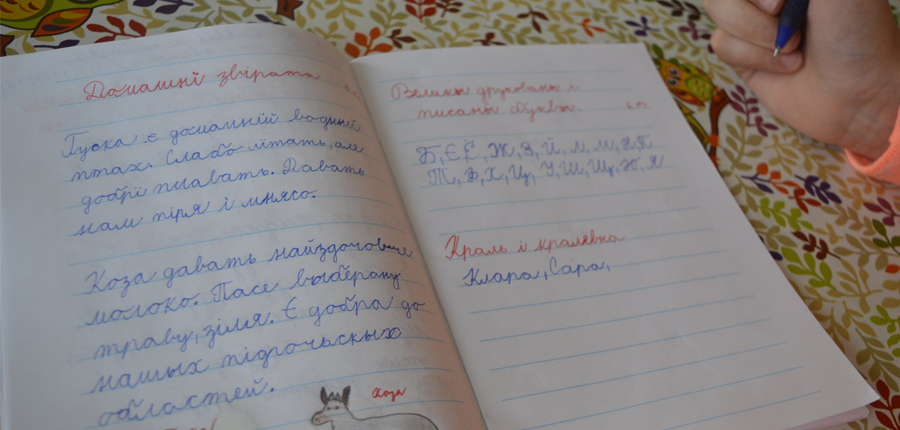 Домашнї звірята
Гуска є домашнїй водный
птах. Слабо літать, але
добрі плавать. Давать
нам піря і мнясо.
Коза давать найздоровше
молоко. Пасе выбёрану
траву, зіля. Є добра до
нашых підгочаскых
областей.
коза
Великы друкованы і
писаны букви.
Б, Є, Ё, Ж, З, Й, Л, М, П
Т, Ф, Х, Ц, Ч, Ш, Щ, Ю, Я
Краль і кралёвна
Клара, Сара,